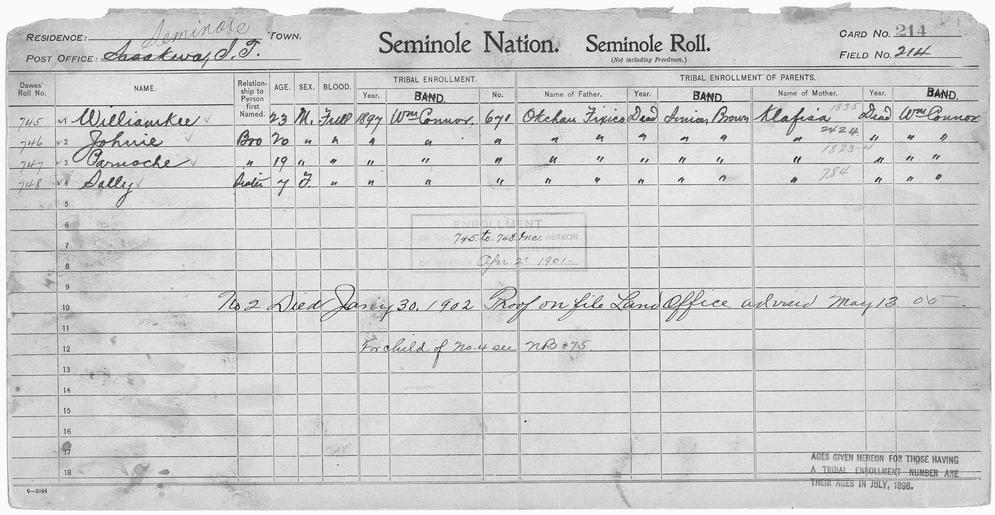 RESIDENCE: Seminole TOWN.
POST OFFICE: Sasakwa, I. T.
Seminole Nation. Seminole Roll.
(Not including Freedmen.)
CARD NO. 214
FIELD NO. 214
Dawes' Roll No. NAME. Relationship to Person first Named. AGE. SEX. BLOOD. TRIBAL ENROLLMENT. TRIBAL ENROLLMENT OF PARENTS.
Year. BAND. No. Name of Father. Year. BAND. Name of Mother. Year. BAND.
745 1 Williamkee 23 M. Full 1897 Wm Connor 671 Okchan Fixico Dead Simon Brown Klafisa 1835 Dead Wm Connor
746 2 Johnie Bro 20 " " " " " " " " " " " 2424 " " "
747 3 Parnoche " 19 " " " " " " " " " " " 1823 " " "
748 4 Sally Sister 7 F. " " " " " " " " " " 784 " " "
5
6 ENROLLMENT
7 745 to 748 Inc. HEREON
8 Apr 2 1901
9
10 No 2 Died Jany 30, 1902 Proof on file Land Office advised May 13 06
11
12 For child of No. 4 see NB #75
13
14
15
16
17
18
AGES GIVEN HEREON FOR THOSE HAVING
A TRIBAL ENROLLMENT NUMBER ARE
THEIR AGES IN JULY, 1898.
6—1044